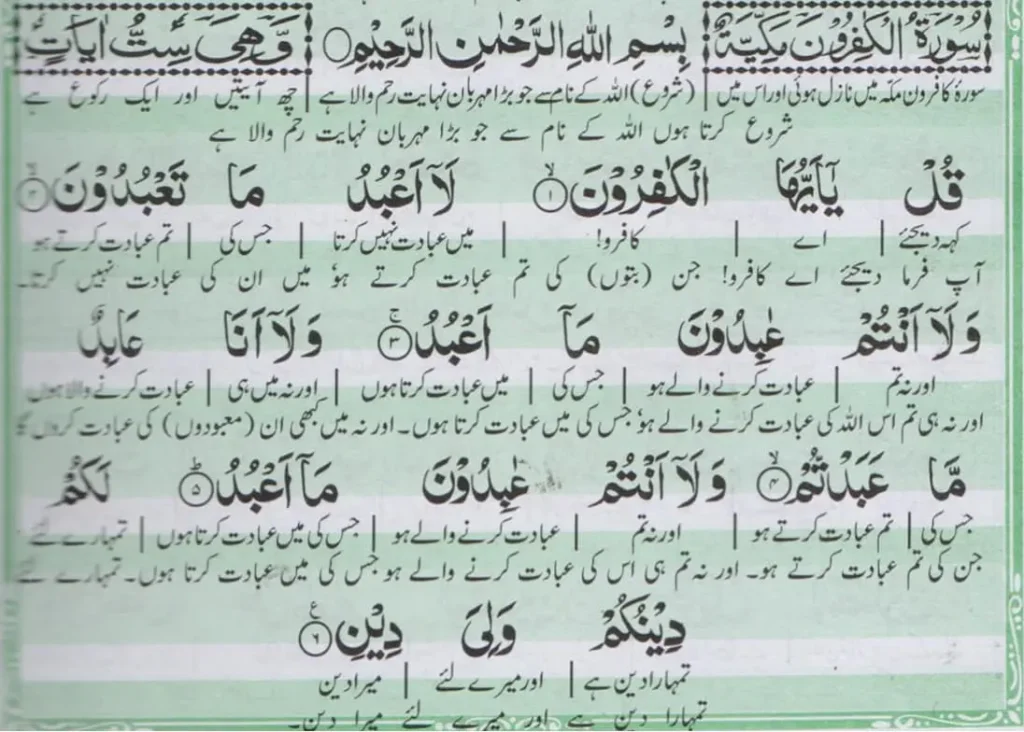 سُوْرَةُ الْكٰفِرُوْنَ مَكِّيَّةٌ بِسْمِ اللهِ الرَّحْمٰنِ الرَّحِيْمِ وَّهِيَ سِتُّ اٰيَاتٍ
سورۂ کافرون مکہ میں نازل ہوئی اور اس میں | (شروع) اللہ کے نام سے جو بڑا مہربان نہایت رحم والا ہے | چھ آیتیں اور ایک رکوع ہے
شروع کرتا ہوں اللہ کے نام سے جو بڑا مہربان نہایت رحم والا ہے
قُلْ يٰٓاَيُّهَا الْكٰفِرُوْنَ ۙ۱ لَآ اَعْبُدُ مَا تَعْبُدُوْنَ ۙ۲
کہہ دیجئے | اے | کافرو! | میں عبادت نہیں کرتا | جس کی | تم عبادت کرتے ہو
آپ فرما دیجئے اے کافرو! جن (بتوں) کی تم عبادت کرتے ہو میں ان کی عبادت نہیں کرتا۔
وَلَآ اَنْتُمْ عٰبِدُوْنَ مَآ اَعْبُدُ ۚ۳ وَلَآ اَنَا عَابِدٌ
اور نہ تم | عبادت کرنے والے ہو | جس کی | میں عبادت کرتا ہوں | اور نہ میں ہی | عبادت کرنے والا ہوں
اور نہ ہی تم اس اللہ کی عبادت کرنے والے ہو جس کی میں عبادت کرتا ہوں۔ اور نہ میں کبھی ان (معبودوں) کی عبادت کروں گا
مَّا عَبَدْتُّمْ ۙ۴ وَلَآ اَنْتُمْ عٰبِدُوْنَ مَآ اَعْبُدُ ؕ۵ لَكُمْ
جس کی | تم عبادت کرتے ہو | اور نہ تم | عبادت کرنے والے ہو | جس کی میں عبادت کرتا ہوں | تمہارے لئے
جن کی تم عبادت کرتے ہو۔ اور نہ تم ہی اس کی عبادت کرنے والے ہو جس کی میں عبادت کرتا ہوں۔ تمہارے لئے
دِيْنُكُمْ وَلِيَ دِيْنِ ۶ ع
تمہارا دین ہے | اور میرے لئے | میرا دین
تمہارا دین ہے اور میرے لئے میرا دین۔